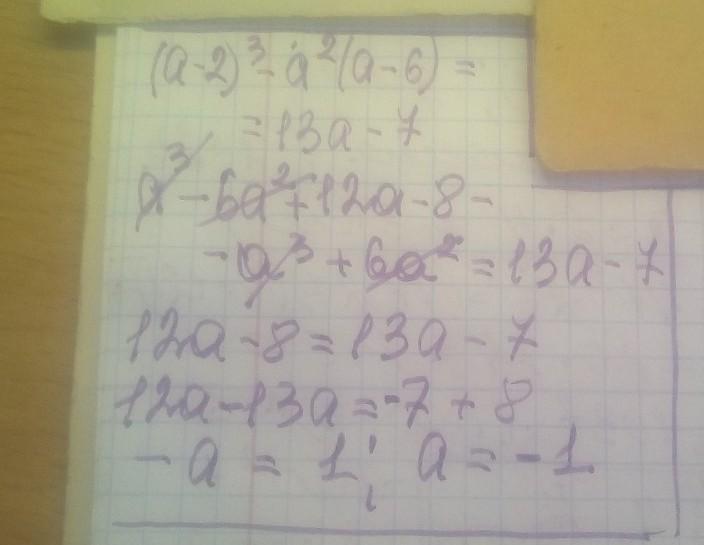 (a-2)³-a²(a-6)=
=13a-7
a³-6a²+12a-8-
-a³+6a²=13a-7
12a-8=13a-7
12a-13a=-7+8
-a=1; a=-1